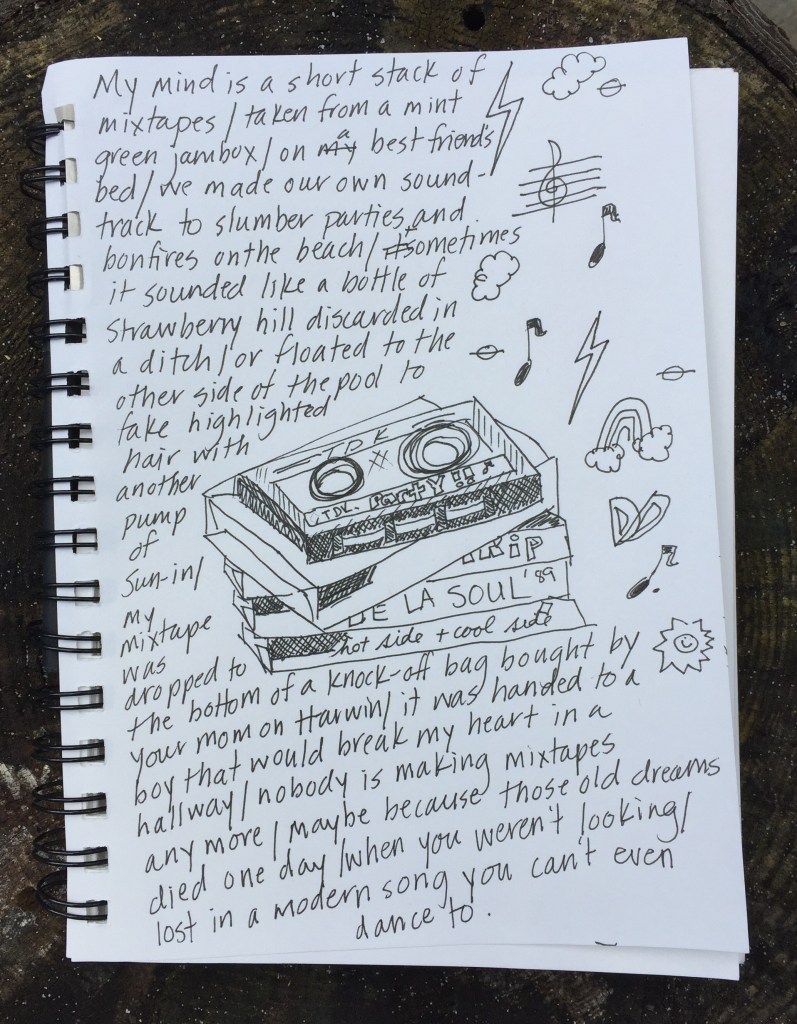 My mind is a short stack of
mixtapes / taken from a mint
green jambox / on my a best friend's
bed / we made our own sound-
track to slumber parties and
bonfires on the beach / sometimes
it sounded like a bottle of
strawberry hill discarded in
a ditch / or floated to the
other side of the pool to
fake highlighted
hair with
another
pump
of
Sun-in /
my
mixtape
was
dropped to
the bottom of a knock-off bag bought by
your mom on Harwin / it was handed to a
boy that would break my heart in a
hallway / nobody is making mixtapes
any more / maybe because those old dreams
died one day / when you weren't looking /
lost in a modern song you can't even
dance to.
TDK
TDK. Party!!
DE LA SOUL '89
hot side + cool side